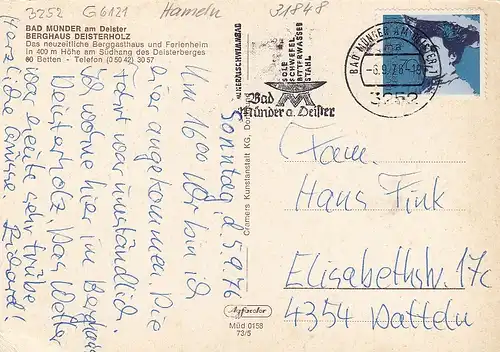 3252 G6121 Hameln 31848
BAD MÜNDER am Deister
BERGHAUS DEISTERHOLZ
Das neuzeitliche Berggasthaus und Ferienheim
in 400 m Höhe am Südhang des Deisterberges
60 Betten - Telefon (0 50 42) 30 57
Sonntag, d. 5.9.76
Um 1600 Uhr bin ich
hier angekommen. Die
Fahrt war umständlich.
Ich wohne hier im Berghaus
Deisterholz. Das Wetter
war heute sehr trübe.
Herzliche Grüsse. Richard!
MINERALSCHWIMMBAD
SOLE
SCHWEFEL
BITTERWASSER
STAHL
Bad
Münder a. Deister
BAD MÜNDER AM DEISTER 1
ma
-6.9.76-18
3252
Cramers Kunstanstalt KG, Dortmund
Agfacolor
Müd 0158
73/5
Fam.
Hans Fink
Elisabethstr. 17c
4354 Datteln